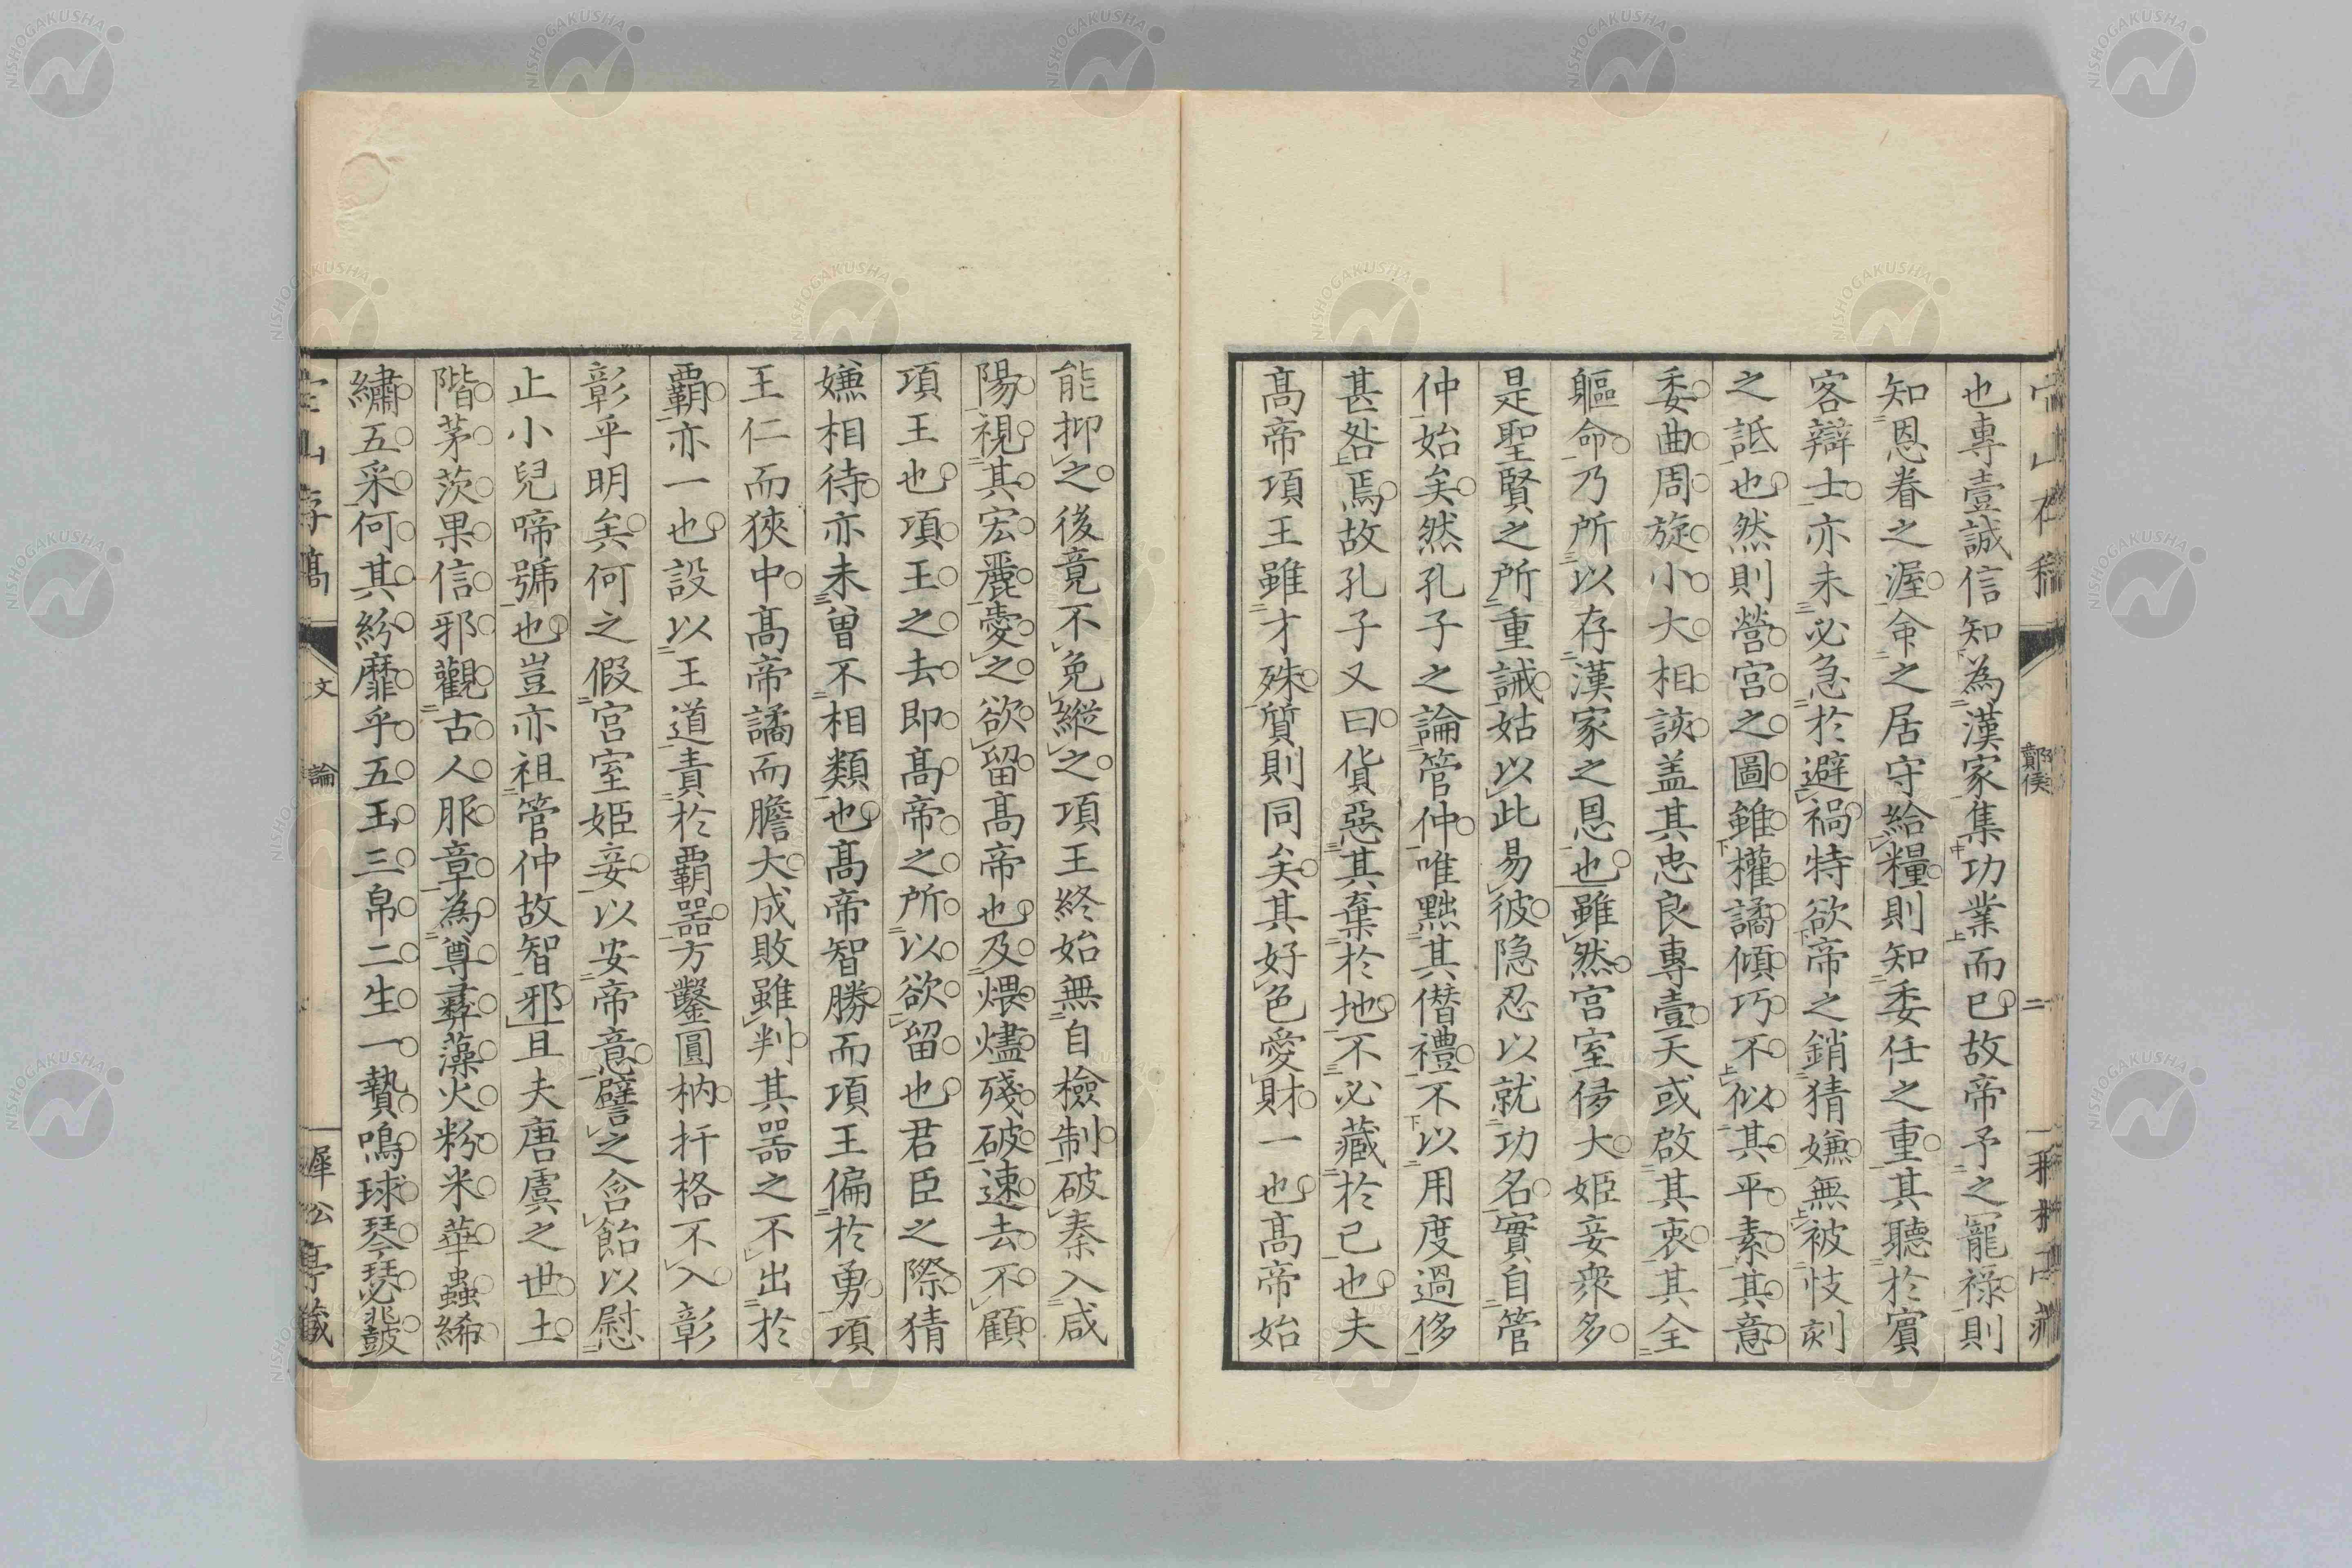 也專壹誠信知為漢家集功業而已故帝予之寵祿則
知恩眷之渥命之居守給糧則知委任之重其聽於賓
客辯士亦未必急於避禍特欲帝之銷猜嫌無被忮刻
之詆也然則營宮之圖雖權譎傾巧不似其平素其意
委曲周旋小大相該盖其忠良專壹天或啟其衷其全
軀命乃所以存漢家之恩也雖然宮室侈大姬妾衆多
是聖賢之所重誡姑以此易彼隐忍以就功名實自管
仲始矣然孔子之論管仲唯黜其僭禮不以用度過侈
甚咎焉故孔子又曰貨惡其棄於地不必藏於己也夫
髙帝項王雖才殊質則同矣其好色愛財一也髙帝始
能抑之後竟不免縱之項王終始無自檢制破秦入咸
陽視其宏麗愛之欲留髙帝也及煨燼殘破速去不顧
項王也項王之去即髙帝之所以欲留也君臣之際猜
嫌相待亦未曾不相類也髙帝智勝而項王偏於勇項
王仁而狹中髙帝譎而膽大成敗雖判其器之不出於
覇亦一也設以王道責於覇器方鑿圓枘扞格不入彰
彰乎明矣何之假宮室姬妾以安帝意譬之含飴以慰
止小兒啼號也豈亦祖管仲故智邪且夫唐虞之世土
階茅茨果信邪觀古人服章為尊彞藻火粉米華蟲絺
繡五采何其紛靡乎五玉三帛二生一贄鳴球琴瑟鼗鼓
文
論
酇侯
二
NISHOGAKUSHA